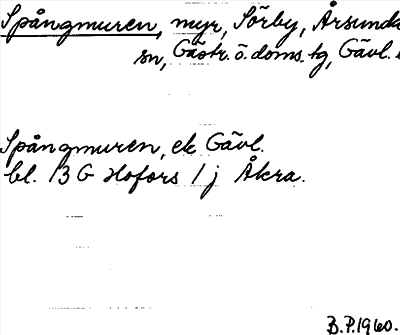 Spångmuren, myr, Sörby, Årsunda
sn, Gästr. ö. doms. tg, Gävl.
Spångmuren, ek Gävl.
bl. 13 G Hofors 1 j Åkra.
B.P.1960.